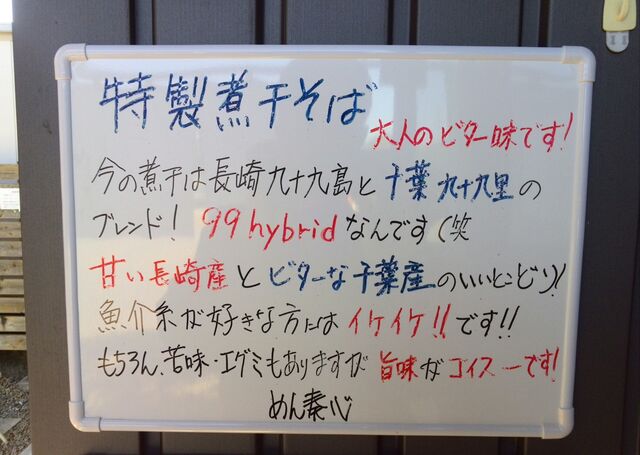 特製煮干そば
大人のビター味です!
今の煮干は長崎九十九島と千葉九十九里の
ブレンド! 99hybridなんです(笑
甘い長崎産とビターな千葉産のいいとこどり!
魚介系が好きな方にはイケイケ!!です!!
もちろん、苦味・エグミもありますが旨味がゴイスーです!
めん奏心